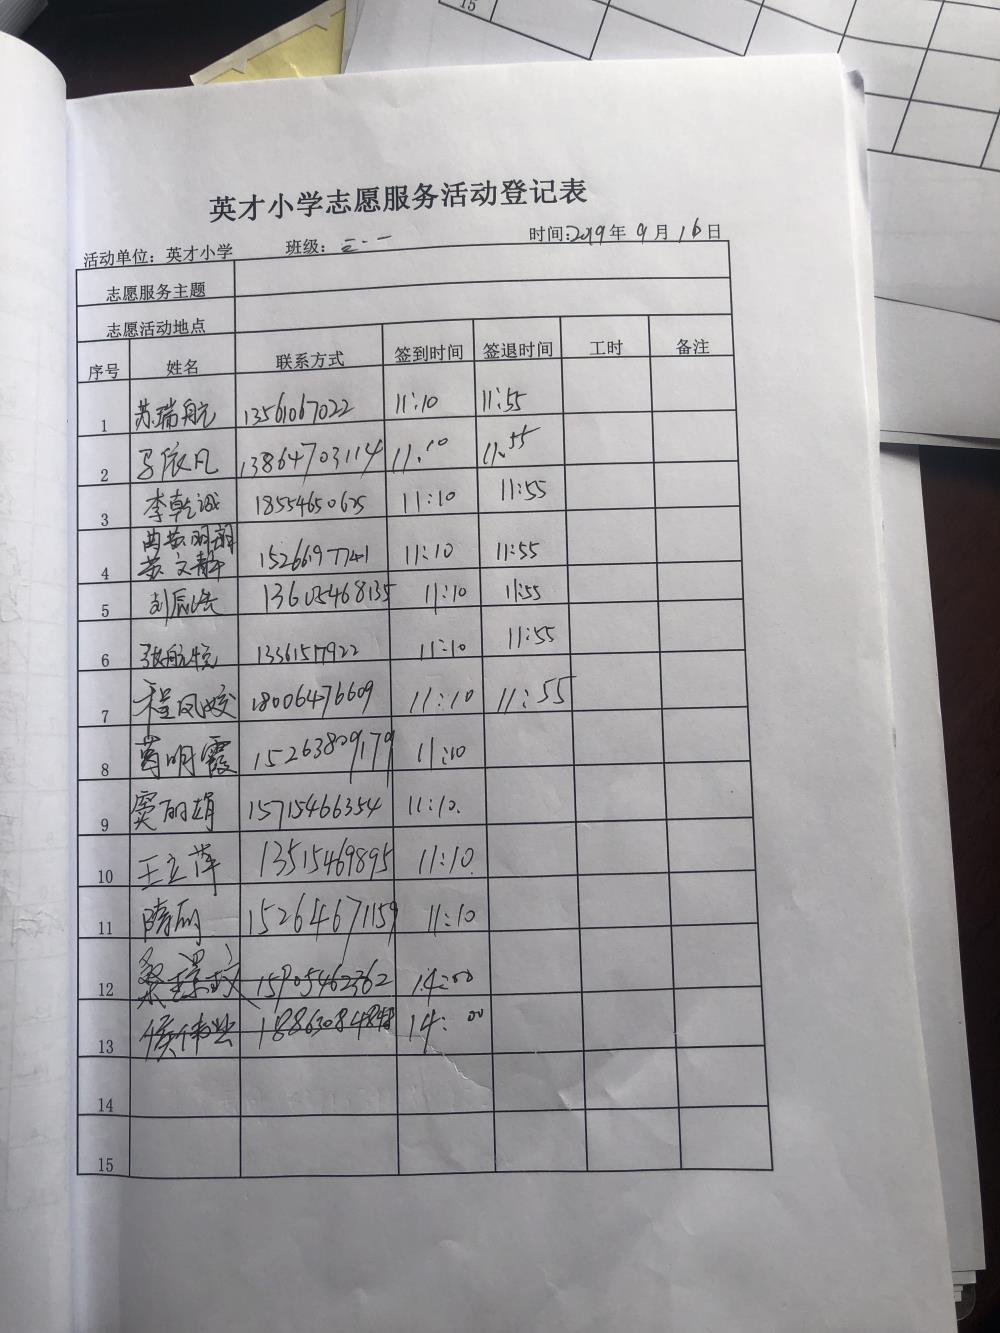 15
英才小学志愿服务活动登记表
活动单位：英才小学 班级：三·一 时间：2019年9月16日
志愿服务主题
志愿活动地点
序号 姓名 联系方式 签到时间 签退时间 工时 备注
1 苏瑞航 13561067022 11:10 11:55
2 马依凡 13864703114 11:10 11:55
3 李乾诚 18554650625 11:10 11:55
4 苏文静 15266197741 11:10 11:55
5 刘辰浩 13605468135 11:10 11:55
6 张航悦 11:10 11:55
7 程凤姣 18006476609 11:10 11:55
8 葛明霞 15263809179 11:10
9 窦丽娟 15715466354 11:10.
10 王立萍 13515469895 11:10.
11 隋丽 15264671159 11:10
12 15905462362 14:00
13 侯伟 18863084848 14:00
14
15